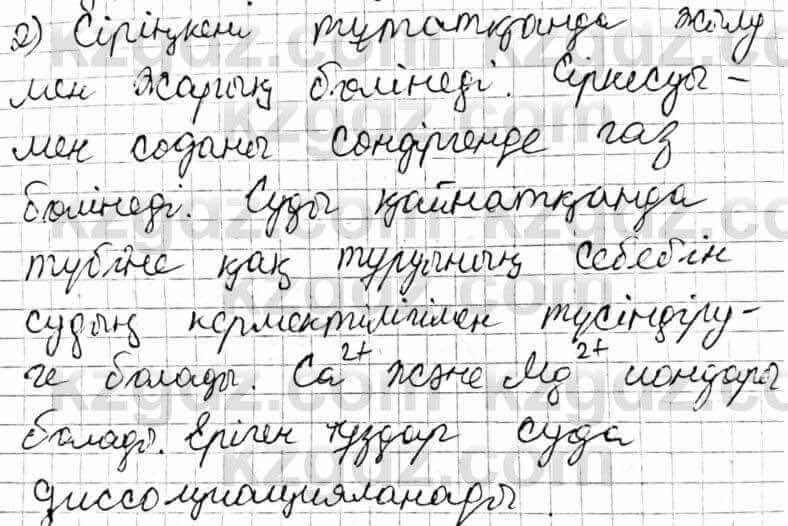 2) Сіріңкені тұтатқанда жылу
мен жарық бөлінеді. Сіркесуы-
мен соданы сөндіргенде газ
бөлінеді. Суды қайнатқанда
түбіне қақ тұруының себебін
судың кермектілігімен түсіндіру-
ге болады. Ca²⁺ және Mg²⁺ иондары
болады. Еріген тұздар суда
диссоциацияланады